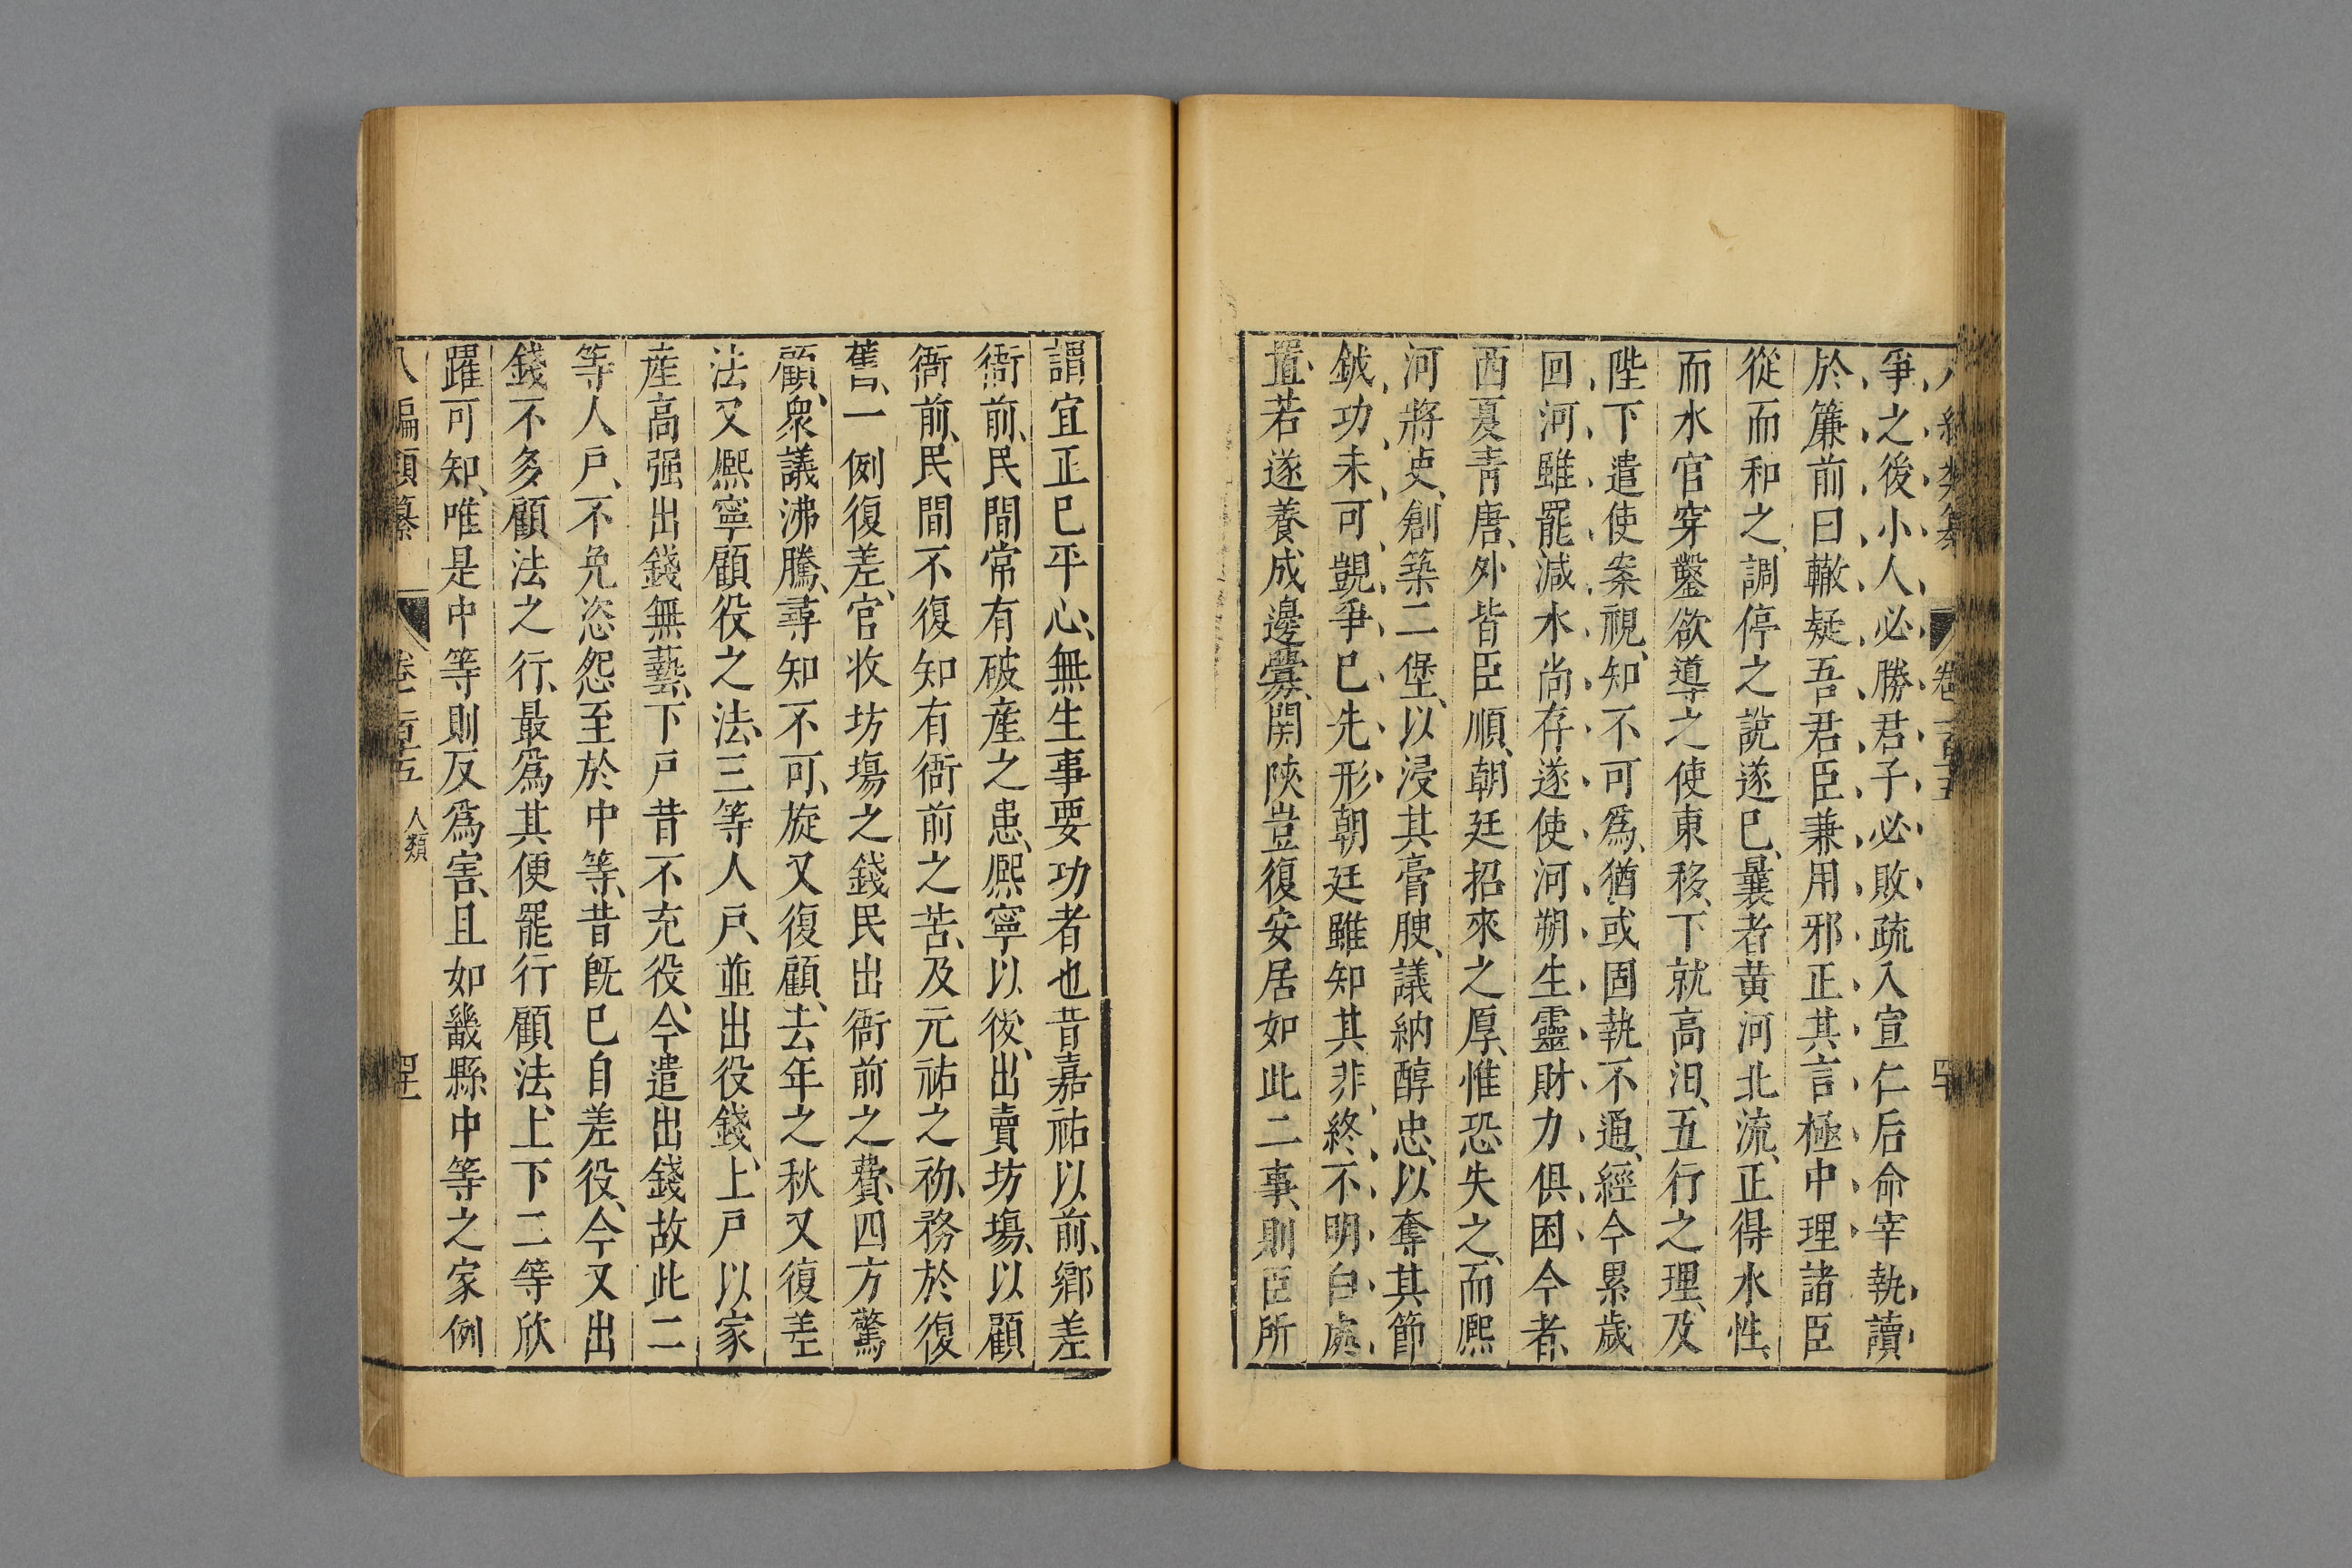 爭之後小人必勝君子必敗疏入宣仁后命宰執讀
於簾前曰轍疑吾君臣兼用邪正其言極中理諸臣
從而和之調停之說遂已曩者黃河北流正得水性
而水官穿鑿欲導之使東移下就高汩五行之理及
陛下遣使案視知不可爲猶或固執不通經今累歲
回河雖罷減水尚存遂使河朔生靈財力俱困今者
西夏青唐外皆臣順朝廷招來之厚惟恐失之而熈
河將吏創築二堡以浸其膏腴議納醇忠以奪其節
鉞功未可覬爭已先形朝廷雖知其非終不明白處
置若遂養成邊釁関陝豈復安居如此二事則臣所
謂宜正已平心無生事要功者也昔嘉祐以前鄉差
衙前民間常有破産之患熈寧以後出賣坊塲以顧
衙前民間不復知有衙前之苦及元祐之初務於復
舊一例復差官收坊塲之錢民出衙前之費四方驚
顧衆議沸騰尋知不可旋又復顧去年之秋又復差
法又熈寧顧役之法三等人戸並出役錢上戸以家
産高强出錢無藝下戸昔不充役今遣出錢故此二
等人戸不免恣怨至於中等昔既已自差役今又出
錢不多顧法之行最爲其便罷行顧法上下二等欣
躍可知唯是中等則反爲害且如畿縣中等之家例
八編類纂 卷一百五 人類